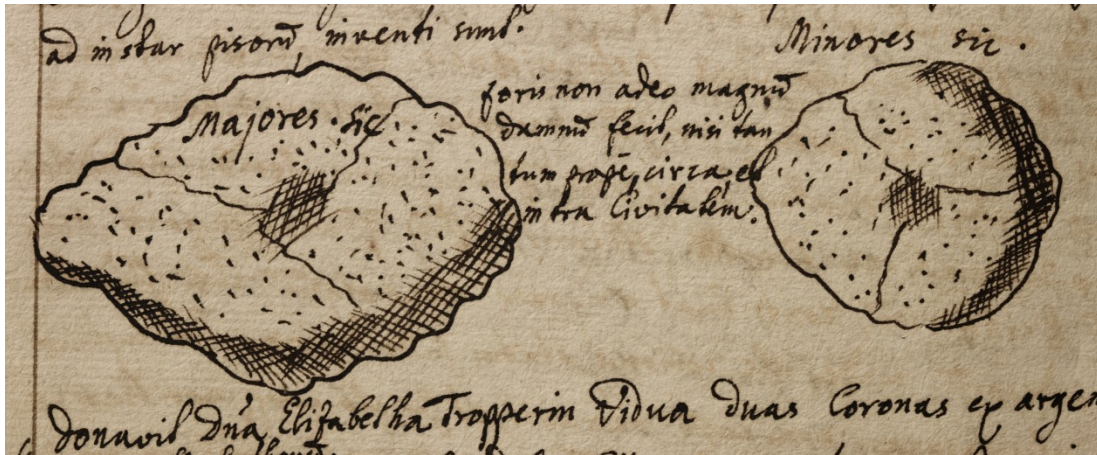 ad instar pisorū, inventi sunt.
Minores sic.
Majores. sic
foris non adeo magnū
damnū fecit, nisi tan
tum propè, circa, et
intra Civitatem.
donavit Dn̄a Elisabetha Tropperin Vidua duas Coronas ex argen